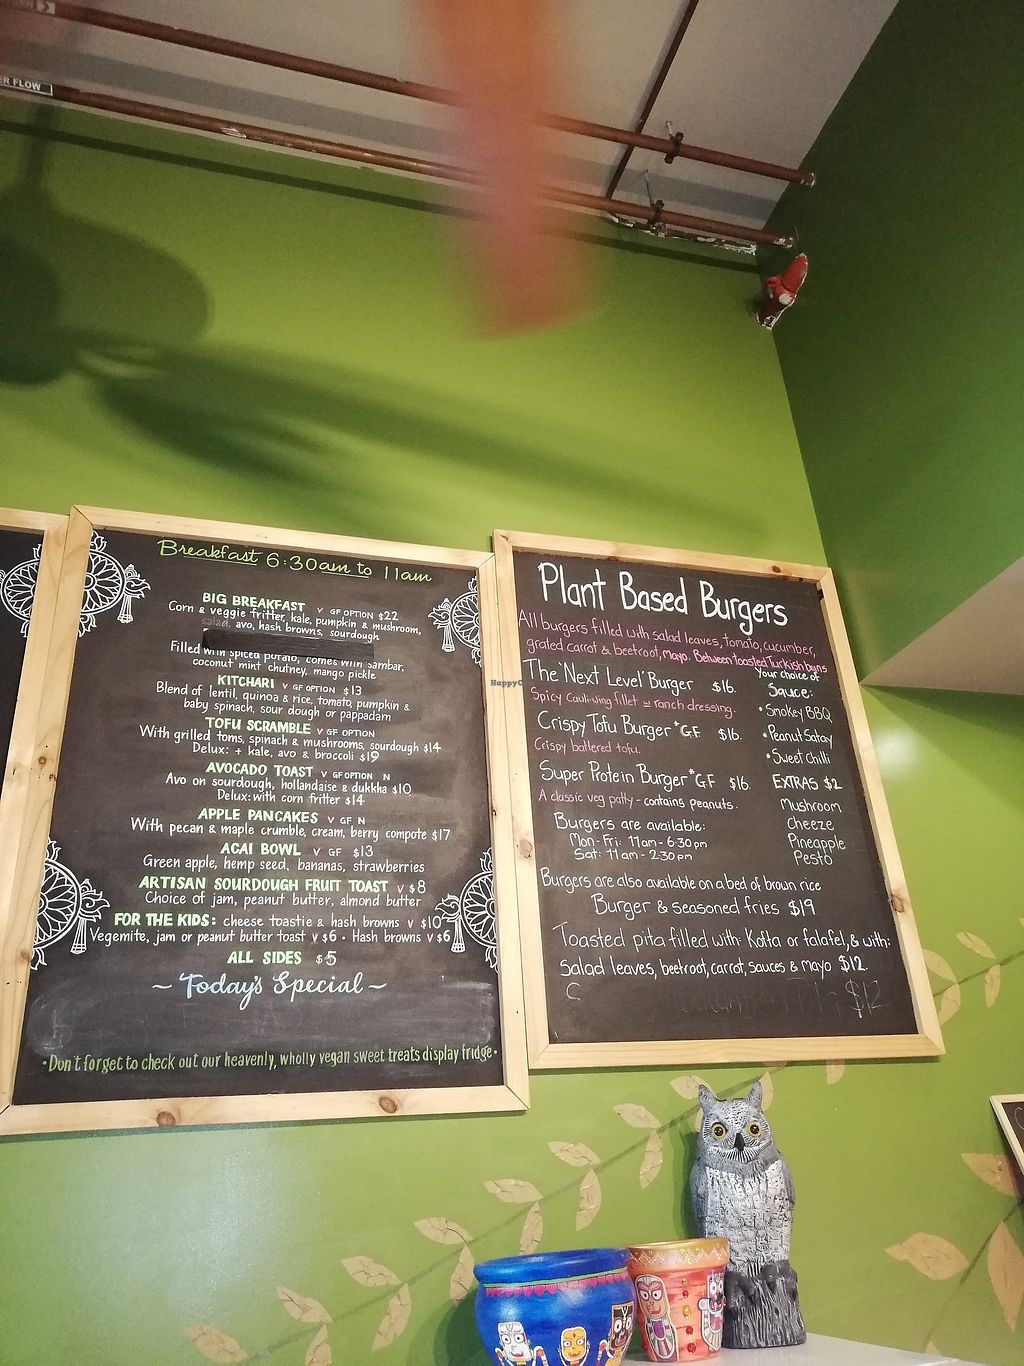 ER FLOW
Breakfast 6:30am to 11am
BIG BREAKFAST V GF OPTION $22
Corn & veggie fritter, kale, pumpkin & mushroom,
salad, avo, hash browns, sourdough
Filled with spiced potato, comes with sambar,
coconut mint chutney, mango pickle
KITCHARI V GF OPTION $13
Blend of lentil, quinoa & rice, tomato, pumpkin &
baby spinach, sour dough or pappadam
TOFU SCRAMBLE V GF OPTION
With grilled toms, spinach & mushrooms, sourdough $14
Delux: + kale, avo & broccoli $19
AVOCADO TOAST V GF OPTION N
Avo on sourdough, hollandaise & dukkha $10
Delux: with corn fritter $14
APPLE PANCAKES V GF N
With pecan & maple crumble, cream, berry compote $17
ACAI BOWL V GF $13
Green apple, hemp seed, bananas, strawberries
ARTISAN SOURDOUGH FRUIT TOAST V $8
Choice of jam, peanut butter, almond butter
FOR THE KIDS: cheese toastie & hash browns V $10
Vegemite, jam or peanut butter toast V $6 • Hash browns V $6
ALL SIDES $5
~ Today's Special ~
• Don't forget to check out our heavenly, wholly vegan sweet treats display fridge •
Plant Based Burgers
All burgers filled with salad leaves, tomato, cucumber,
grated carrot & beetroot, mayo. Between toasted Turkish buns
The 'Next Level' Burger $16.
Spicy Cauli-wing fillet w ranch dressing.
Crispy Tofu Burger *GF $16.
Crispy battered tofu.
Super Protein Burger *GF $16.
A classic veg patty - contains peanuts.
Burgers are available:
Mon - Fri: 11am - 6:30 pm
Sat: 11am - 2:30 pm
Your choice of
Sauce:
• Smokey BBQ
• Peanut Satay
• Sweet Chilli
EXTRAS $2
Mushroom
Cheeze
Pineapple
Pesto
Burgers are also available on a bed of brown rice
Burger & seasoned fries $19
Toasted pita filled with: Kofta or falafel, & with:
Salad leaves, beetroot, carrot, sauces & mayo $12.
C $12